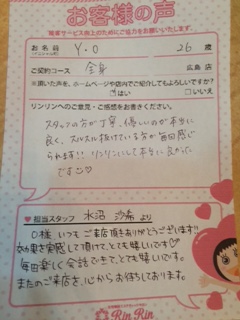 お客様の声
お名前 Y.O 26歳
ご契約コース 全身 広島店
※頂いた声を、ホームページや店内でご紹介してもよろしいですか？
□はい □いいえ
リンリンへのご意見・ご感想をお書きください。
スタッフの方が丁寧、優しいのが本当に
良く、スルスル抜けている方が毎回感じ
られます!! リンリンにして本当に良かった
です
担当スタッフ 水沼 沙希 より
O様 いつもご来店頂きありがとうございます!!
効果を実感して頂けてとても嬉しいです
毎回楽しく会話できてとても嬉しいです。
またのご来店を、心からお待ちしております。
Rin Rin